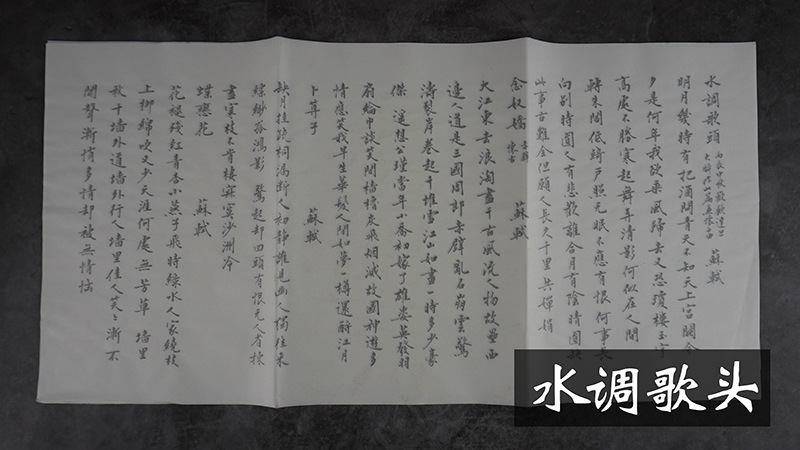 水調歌頭 丙辰中秋歡飲達旦
大醉作此篇兼懷子由 蘇軾
明月幾時有把酒問青天不知天上宮闕今
夕是何年我欲乘風歸去又恐瓊樓玉宇
高處不勝寒起舞弄清影何似在人間
轉朱閣低綺戶照无眠不應有恨何事長
向别時圓人有悲歡離合月有陰晴圓缺
此事古難全但願人長久千里共嬋娟
念奴嬌 赤壁
懷古 蘇軾
大江東去浪淘盡千古風流人物故壘西
邊人道是三國周郎赤壁亂石崩雲驚
濤裂岸卷起千堆雪江山如畫一時多少豪
傑 遥想公瑾當年小喬初嫁了雄姿英發羽
扇綸巾談笑間檣櫓灰飛烟滅故國神遊多
情應笑我早生華髮人間如夢一樽還酹江月
卜算子 蘇軾
缺月挂疏桐漏斷人初靜誰見幽人獨往來
縹緲孤鴻影 驚起却回頭有恨无人省揀
盡寒枝不肯棲寂寞沙洲冷
蝶戀花 蘇軾
花褪殘紅青杏小燕子飛時綠水人家繞枝
上柳綿吹又少天涯何處無芳草 墻里
秋千墻外道墻外行人墻里佳人笑笑漸不
聞聲漸悄多情却被無情惱
水调歌头